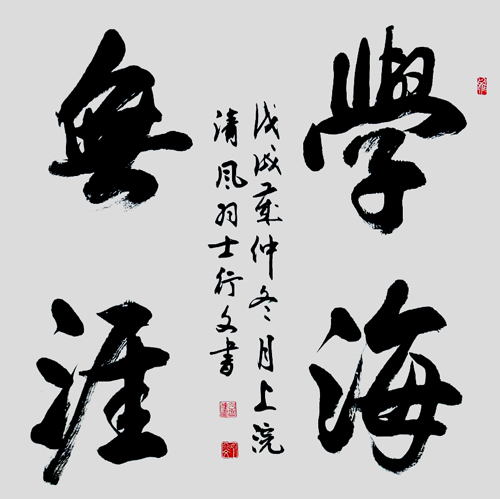 學海
無涯
戊戌歲仲冬月上浣
清風羽士行文書